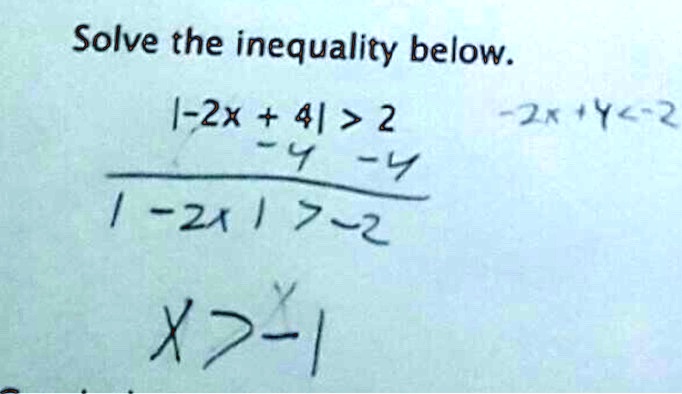 Solve the inequality below.
|-2x + 4| > 2
-2x + 4 < -2
-4 -4
| -2x | > -2
x > -1